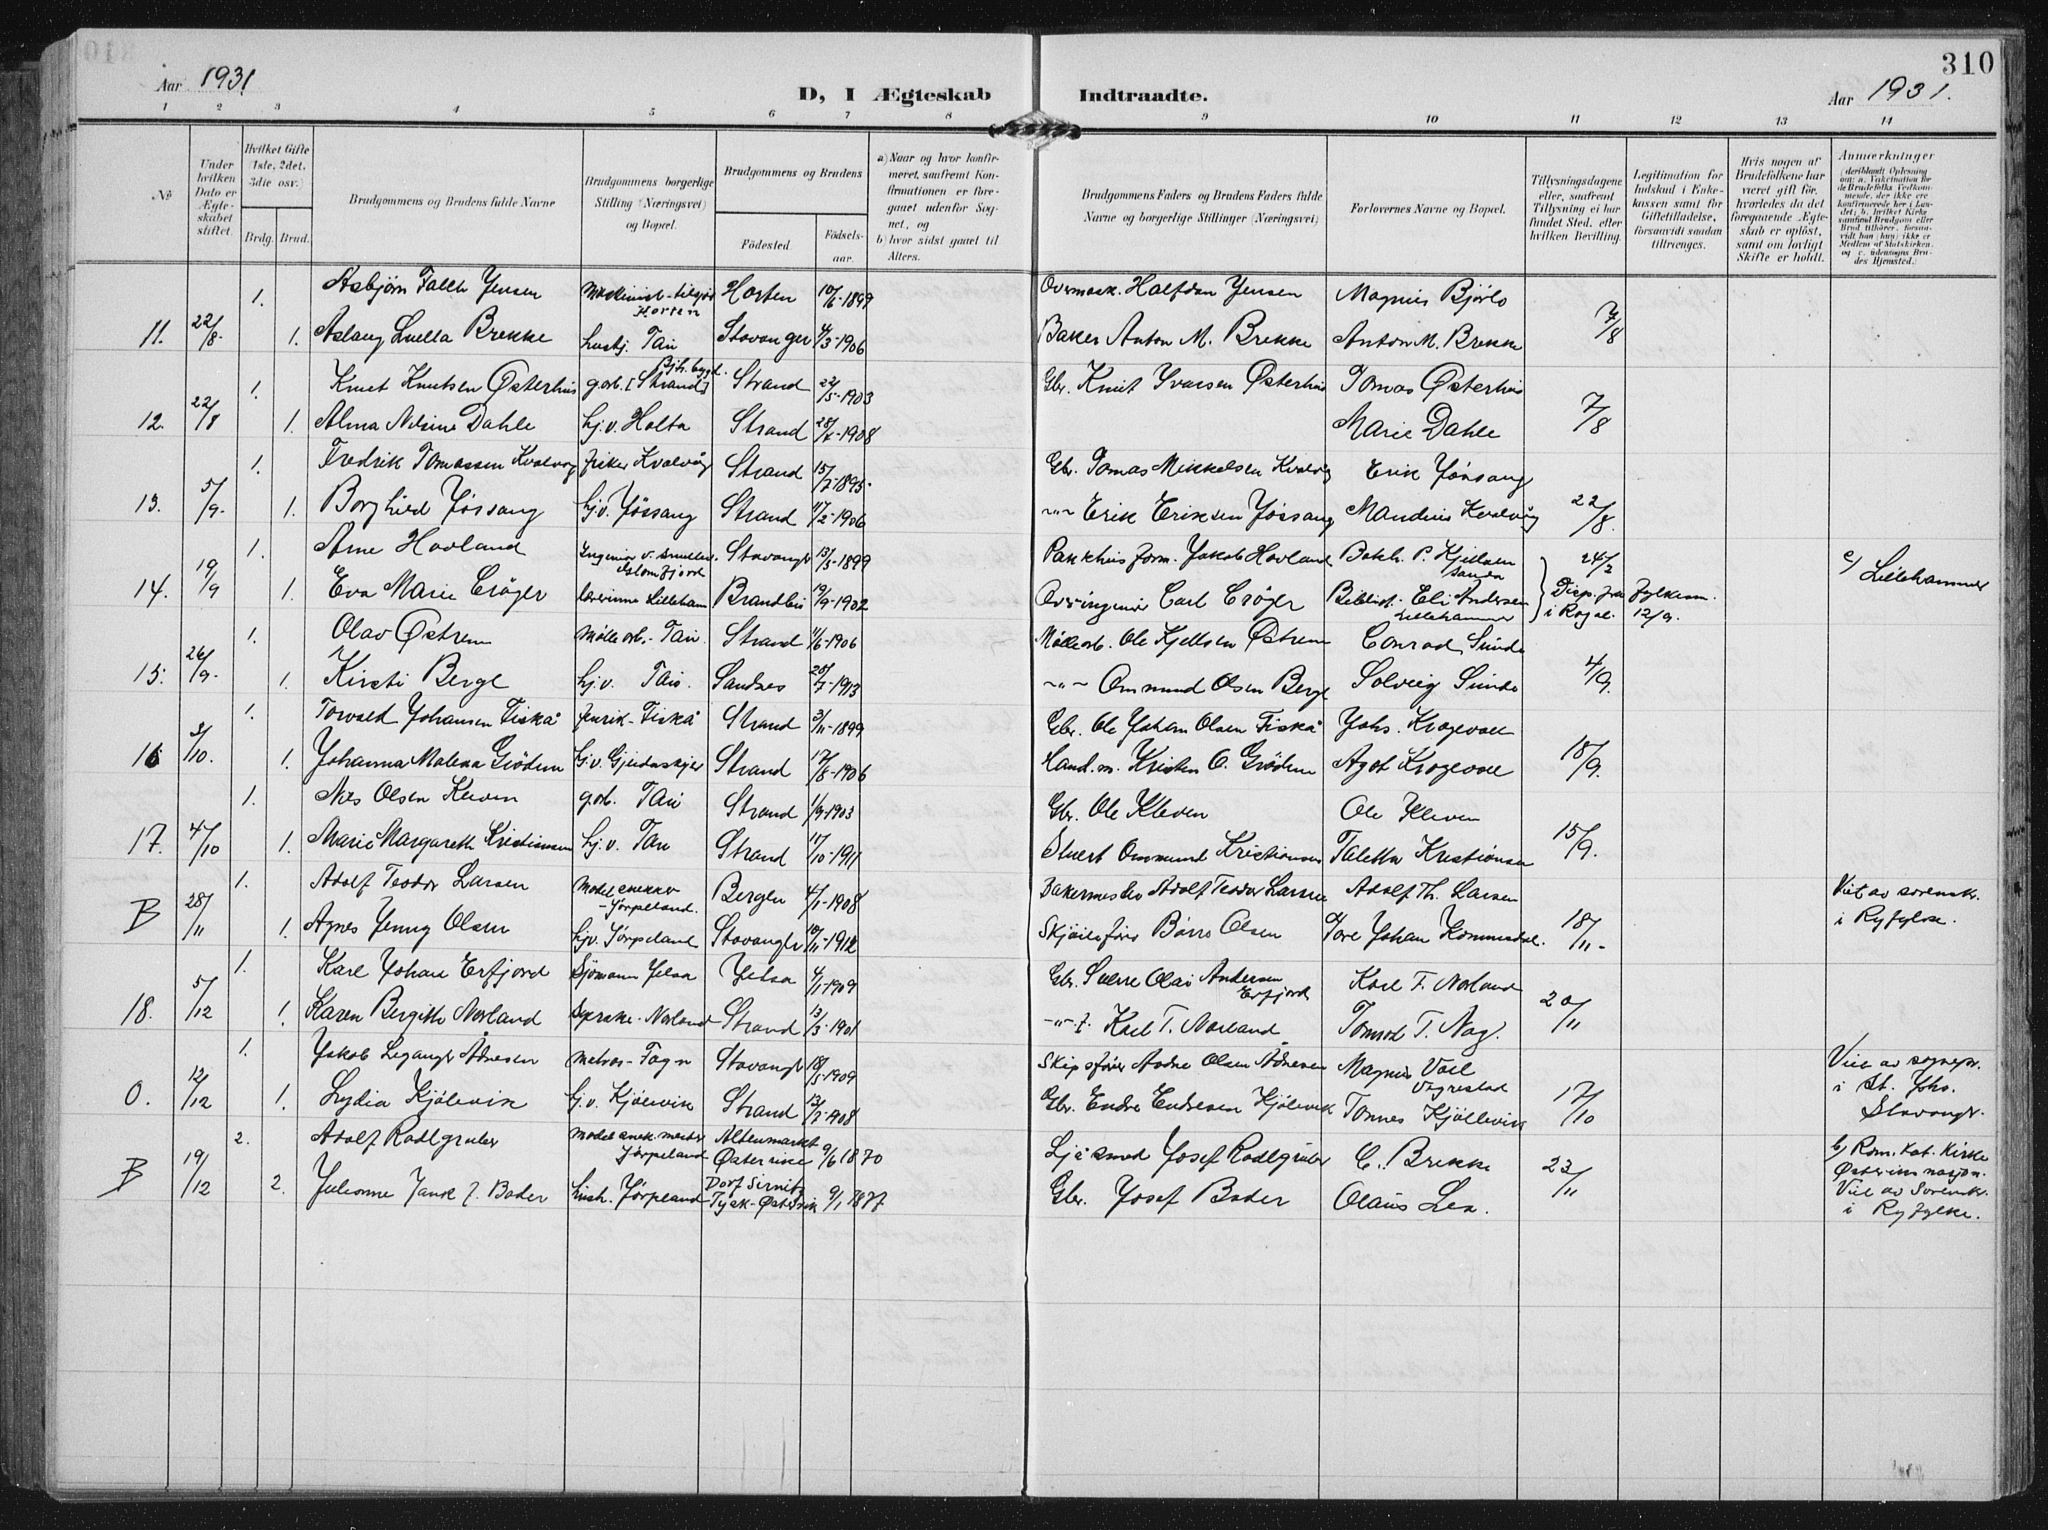 310
Aar 1931
D, I Ægteskab Indtraadte.
Aar 1931.
1 2 3 4 5 6 7 8 9 10 11 12 13 14
№
Under hvilken Dato er Ægteskabet stiftet.
Hvilket Gifte (1ste, 2det, 3die osv.)
Brdg. Brud.
Brudgommens og Brudens fulde Navne
Brudgommens borgerlige Stilling (Næringsvei) og Bopæl.
Brudgommens og Brudens
Fødested. Fødselsaar.
a) Naar og hvor konfirmeret, saafremt Konfirmationen er foregaaet udenfor Sognet, og
b) hvor sidst gaaet til Alters.
Brudgommens Faders og Brudens Faders fulde Navne og borgerlige Stillinger (Næringsvei)
Forlovernes Navne og Bopæl.
Tillysningsdagene eller, saafremt Tillysning ei har fundet Sted, efter hvilken Bevilling.
Legitimation for Indskud i Enkekassen samt for Giftetilladelse, forsaavidt saadan tiltrænges.
Hvis nogen af Brudefolkene har været gift før, hvorledes da det foregaaende Ægteskab er opløst, samt om lovligt Skifte er holdt.
Anmærkninger (deriblandt Oplysning om: a. Vakcination for de Brudefolks Vedkommende, der ikke ere konfirmerede her i Landet; b. hvilket Kirkesamfund Brudgom eller Brud tilhører, forsaavidt han (hun) ikke er Medlem af Statskirken, og c. udensogns Brudes Hjemsted.)
1. Asbjørn Jensen Horten 10/6-1899 Overmask. Halfdan Jensen Magnus Bjørlo
Horten
11. 22/8 1. Aslaug Luella Brekke Tau Stavanger 4/3-1906 Baker Anton M. Brekke Anton M. Brekke 7/8
1. Knut Knutsen Østerhus g.arb. [Strand] Strand 22/5-1903 Gbr. Knut Ivarsen Østerhus Tomas Østerhus
12. 22/8 1. Alma Nilsine Dahle hj.v. Holta Strand 1908 Marie Dahle 7/8
1. Fredrik Tomassen Kvalvåg fisker Kvalvåg Strand 15/7-1895 Gbr. Tomas Mikkelsen Kvalvåg Erik Jøssang
13. 5/9 1. Borghild Jøssang hj.v. Jøssang Strand 17/2-1906 -"- Erik Eriksen Jøssang Mandius Kvalvåg 22/8.
1. Arne Hovland Ingeniør v. Stavanger 13/5-1899 Pakkhusform. Jakob Hovland Bokh. P. Kjeldsen 24/2 c/ Lillehammer
Glomfjord
14. 19/9 1. Eva Marie Crøger lærerinne Lilleham Brandbu 19/9-1902 Overingeniør Carl Crøger Bibliot. Eli Andersen Disp. fra Fylkesm.
Lillehammer i Rogal. 12/9.
1. Olav Østrem Mølle arb. - Tau Strand 1/6-1906 Møllearb. Ole Kjellsen Østrem Conrad Sunde
15. 26/9. 1. Kirsti Berge hj.v. Tau. Sandnes 28/7-1913 -"- Ommund Olsen Berge Solveig Sunde 4/9.
1. Torvald Johansen Fiskå Fiskå Strand 3/11-1899 Gbr. Ole Johan Olsen Fiskå Johs. Krogevoll
16 3/10. 1. Johanna Malena Grødem hj.v. Strand 17/8-1906 Hand.m. Kristen O. Grødem Agot Krogevoll 18/9.
1. Nils Olsen Kleven g.arb. Tau Strand 1/9-1903 Gbr. Ole Kleven Ole Kleven
17. 4/10 1. Marie Margareth Kristiansen hj.v. Tau Strand 17/10-1911 Stuert Ommund Kristiansen Taletta Kristiansen 15/9.
1. Adolf Teodor Larsen Model snekker Bergen 4/1-1908 Bakermester Adolf Teodor Larsen Adolf Th. Larsen Viet av sorenskr.
-Jørpeland. i Ryfylke.
B 28/11 1. Agnes Jenny Olsen hj.v. Jørpeland Stavanger 1912 Børre Olsen Tore Johan Kommedal. 18/11-
1. Karl Johan Erfjord Sjømann Jelsa Jelsa 4/1-1909 Gbr. Sverre Olai Andersen Erfjord Karl T. Norland
18. 5/12 1. Karen Bergitte Norland Norland Strand 13/3-1901 -"- Karl T. Norland T. Nag. 20/11
1. Jakob Leganger Ådnesen Matros - Fogn Stavanger 18/5-1909 Skipsfører Andre Olsen Ådnesen Magnus Voll Viet av sognepr.
Vigrestad i St. Johs.
O. 12/12 1. Lydia Kjølevik hj.v. Kjølevik Strand 1908 Gbr. Endre Endresen Kjølevik Tønnes Kjøllevik 17/10 Stavanger.
2. Adolf Radlgruber Model snek. mester Altenmarkt 9/6 1870 Ljåsmed Josef Radlgruber C. Brekke b/ Rom. Kat. Kirke
Jørpeland Østerrike Østerriksk nasjon.
B 19/12 2. Julianne Jank f. Bader hush. Jørpeland Dorf Sirnitz 9/1 1877 Gbr. Josef Bader Olaus Lea. 23/11 Viet av Sorenskr.
Tysk-Østerrik i Ryfylke.